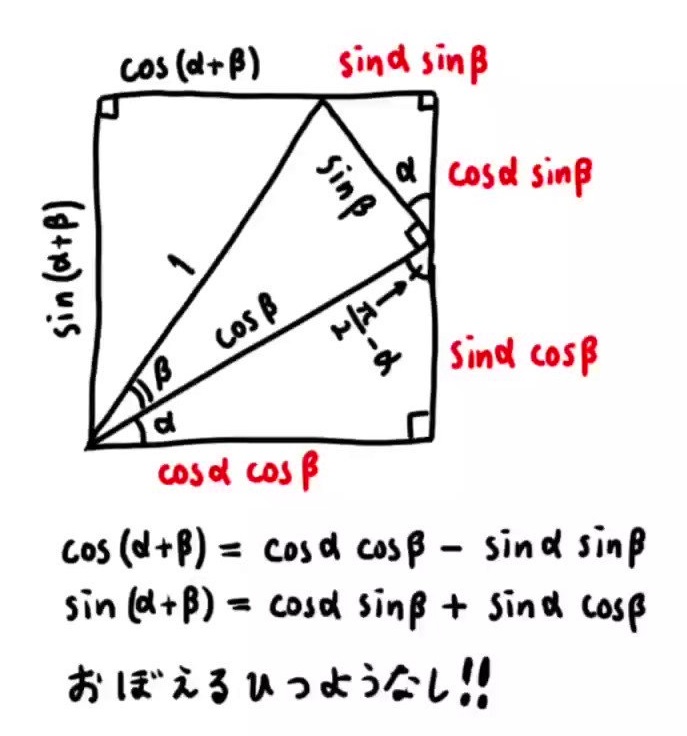 cos(α+β) sinα sinβ
α cosα sinβ
sinβ
sin(α+β)
1
cosβ
π/2-α
sinα cosβ
β
α
cosα cosβ
cos(α+β) = cosα cosβ - sinα sinβ
sin(α+β) = cosα sinβ + sinα cosβ
おぼえるひつようなし!!